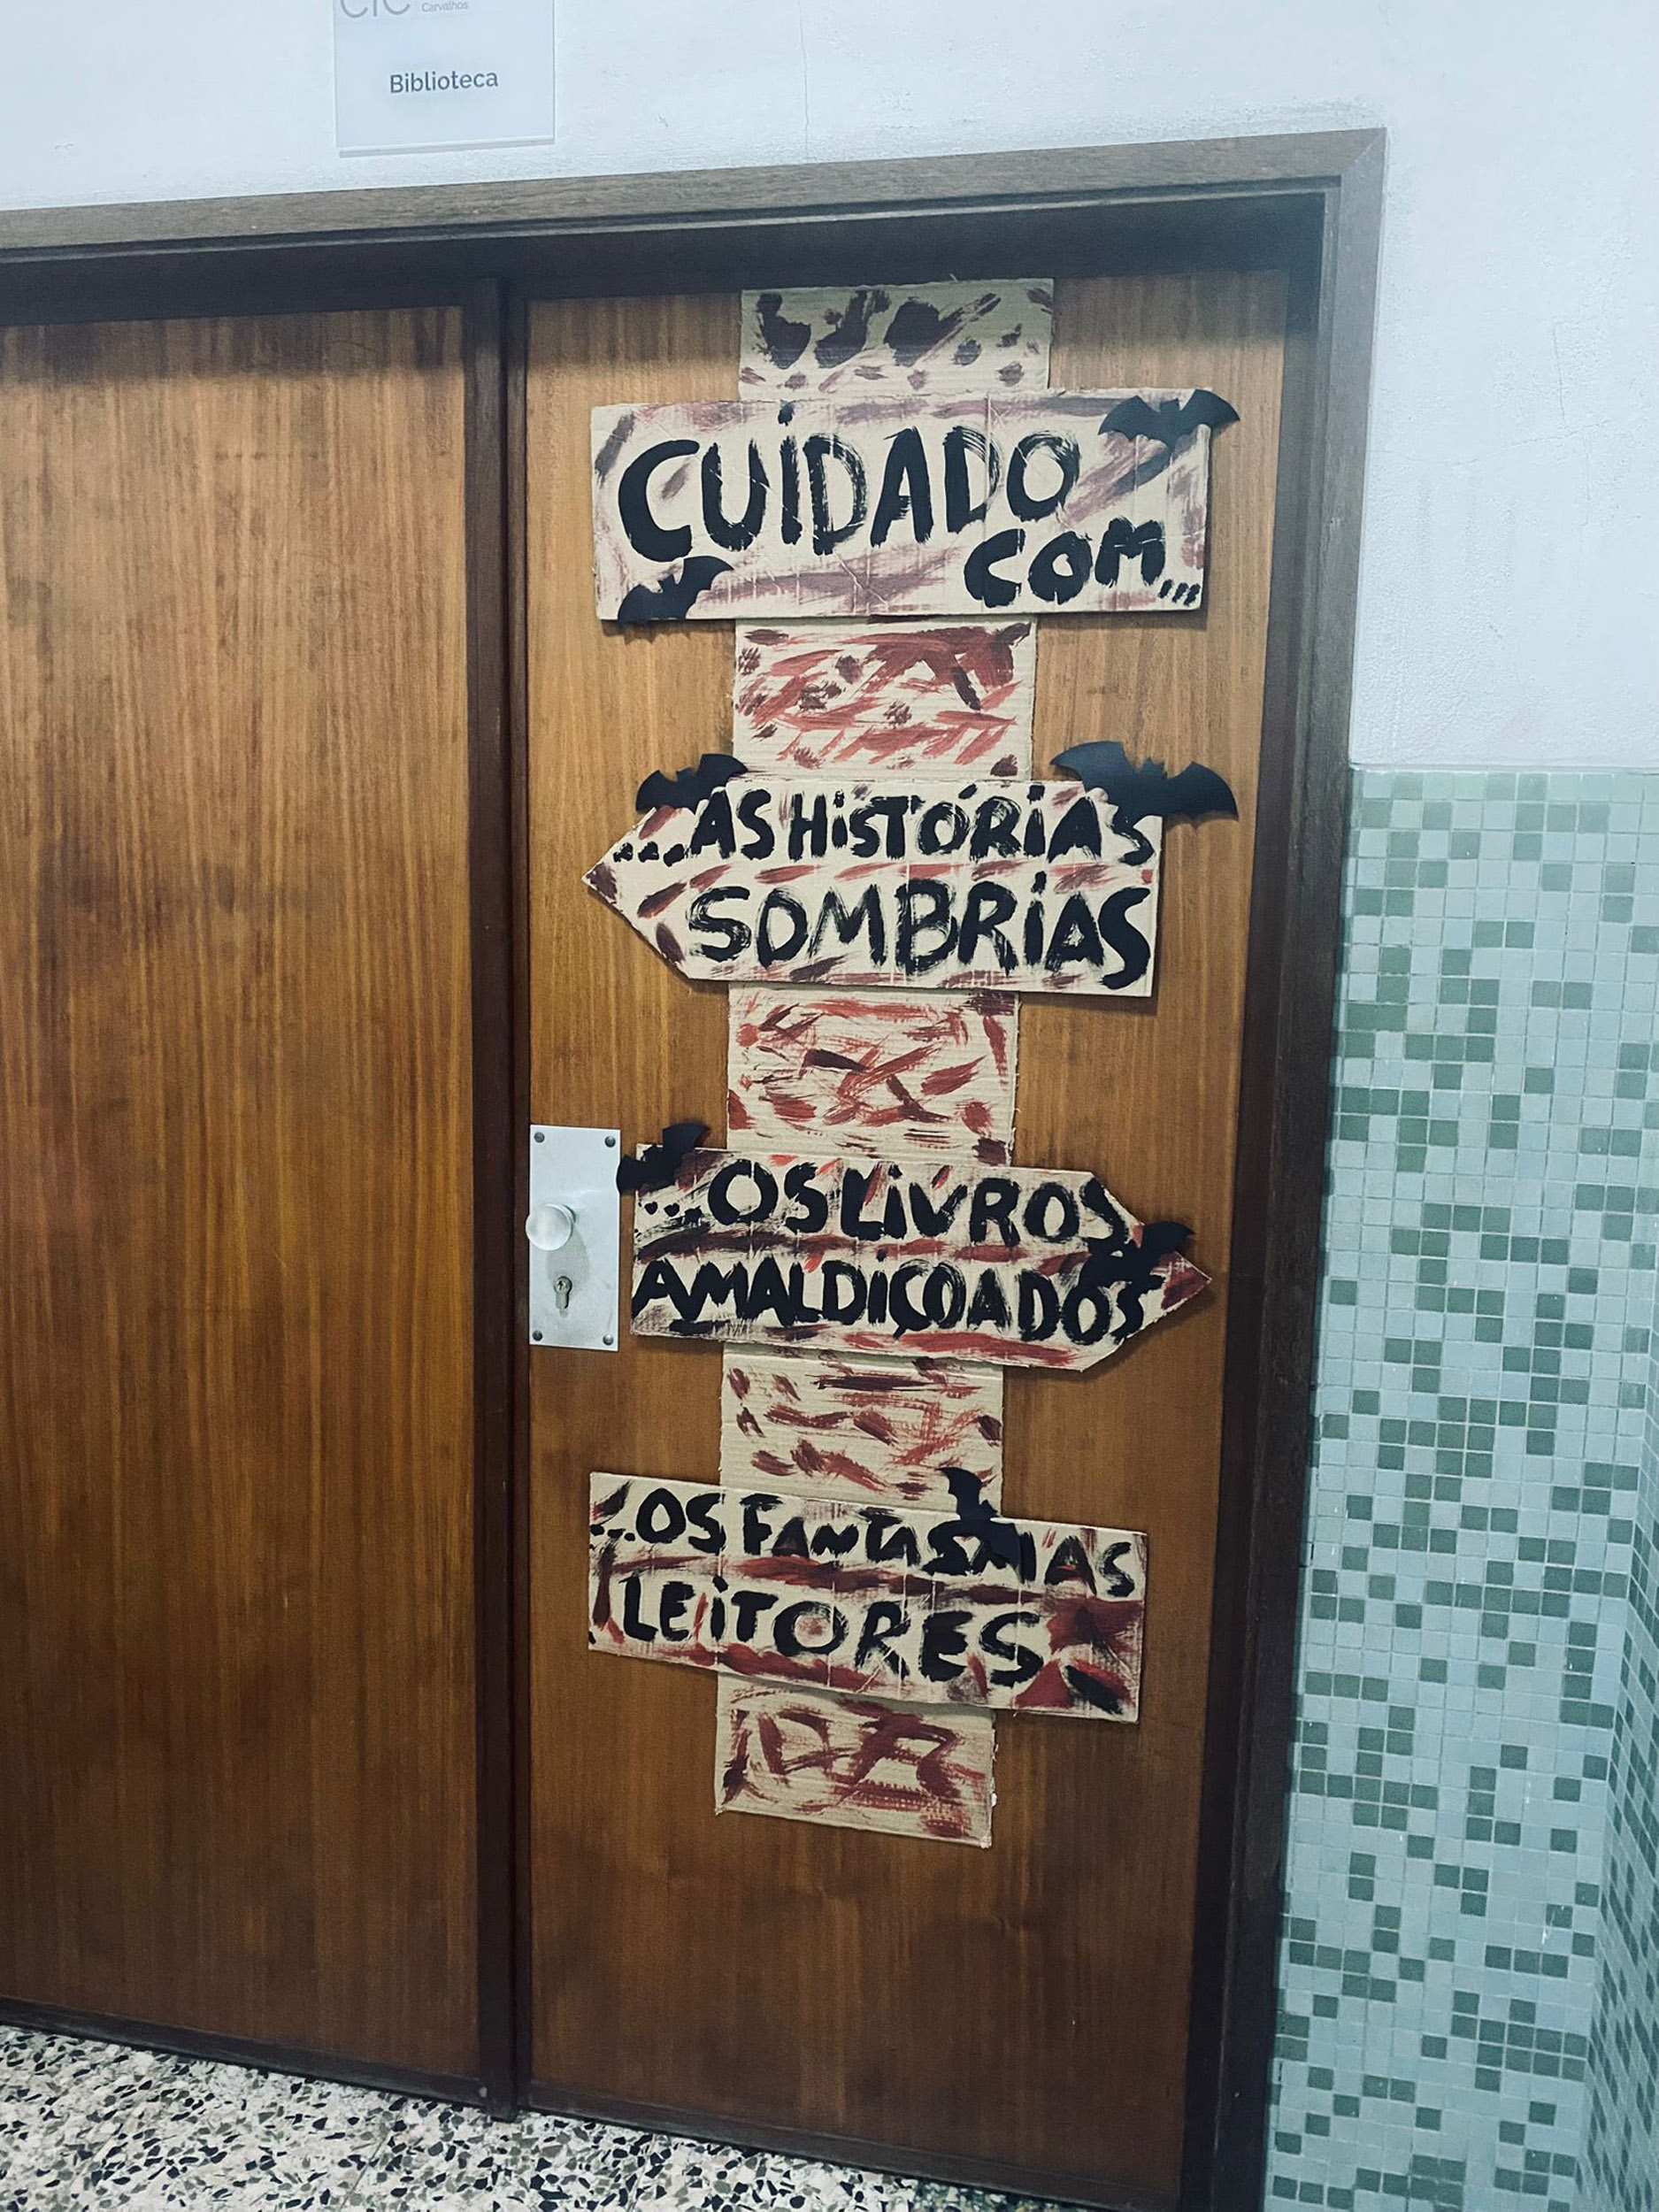 Carvalhos
Biblioteca
CUIDADO
COM...
...AS HISTÓRIAS
SOMBRIAS
...OS LIVROS
AMALDIÇOADOS
...OS FANTASMAS
LEITORES